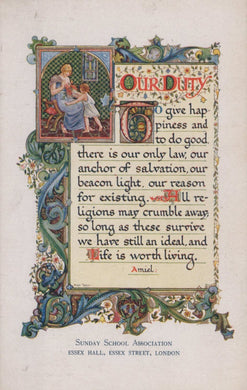 OUR DUTY
To give hap-
piness and
to do good,
there is our only law, our
anchor of salvation, our
beacon light, our reason
for existing. All re-
ligions may crumble away,
so long as these survive
we have still an ideal, and
life is worth living.
Amiel.
SUNDAY SCHOOL ASSOCIATION
ESSEX HALL, ESSEX STREET, LONDON